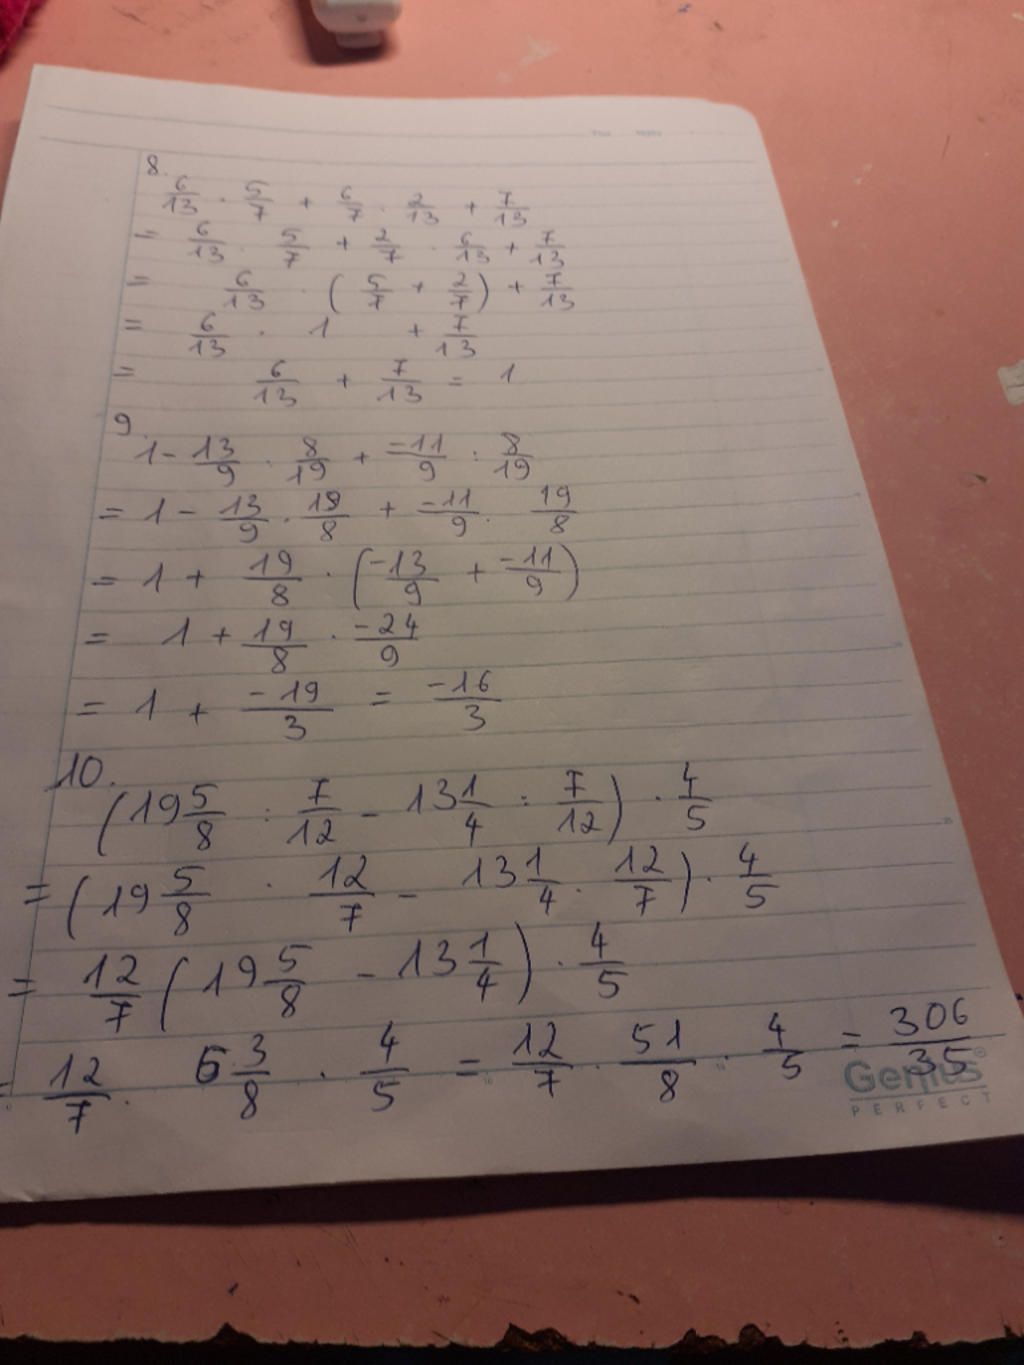 8.
6/13 · 5/7 + 6/7 · 2/13 + 7/13
= 6/13 · 5/7 + 2/7 · 6/13 + 7/13
= 6/13 · (5/7 + 2/7) + 7/13
= 6/13 · 1 + 7/13
= 6/13 + 7/13 = 1
9.
1 - 13/9 · 8/19 + -11/9 : 8/19
= 1 - 13/9 · 19/8 + -11/9 · 19/8
= 1 + 19/8 · (-13/9 + -11/9)
= 1 + 19/8 · -24/9
= 1 + -19/3 = -16/3
10.
(19 5/8 : 7/12 - 13 1/4 : 7/12) · 4/5
= (19 5/8 · 12/7 - 13 1/4 · 12/7) · 4/5
= 12/7 (19 5/8 - 13 1/4) · 4/5
= 12/7 · 6 3/8 · 4/5 = 12/7 · 51/8 · 4/5 = 306/35
Genius®
PERFECT